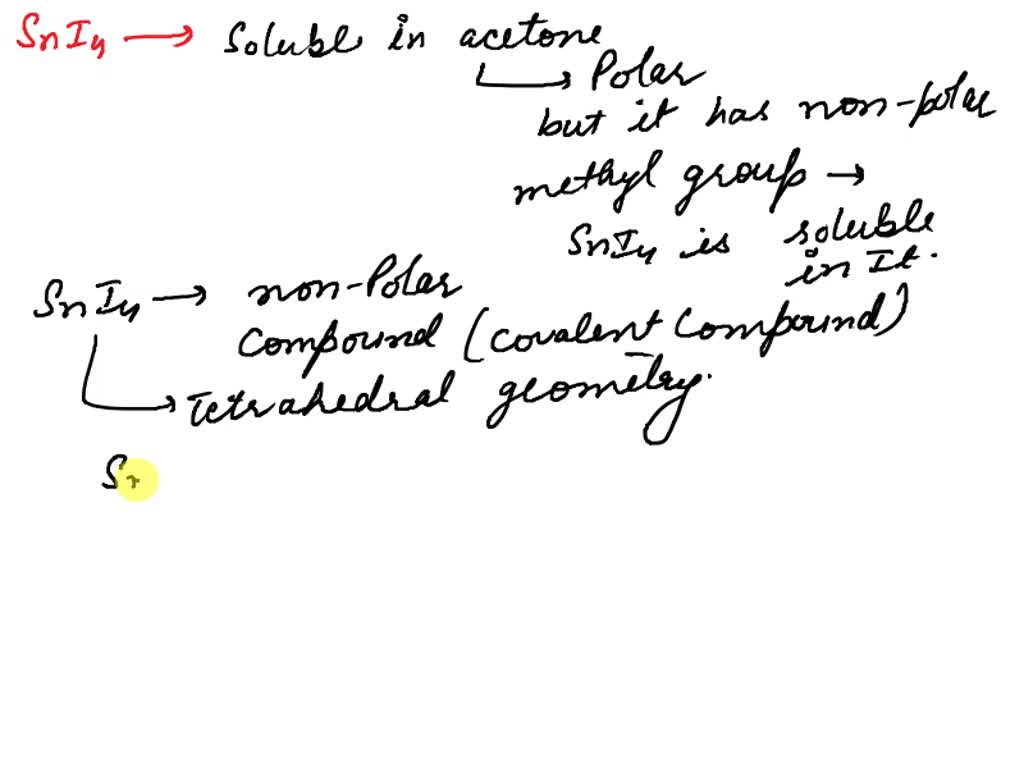 SnI4 → Soluble in acetone
→ Polar
but it has non-polar
methyl group →
SnI4 is soluble
in It.
SnI4 → non-Polar
compound (covalent compound)
→ Tetrahedral geometry.
Sn